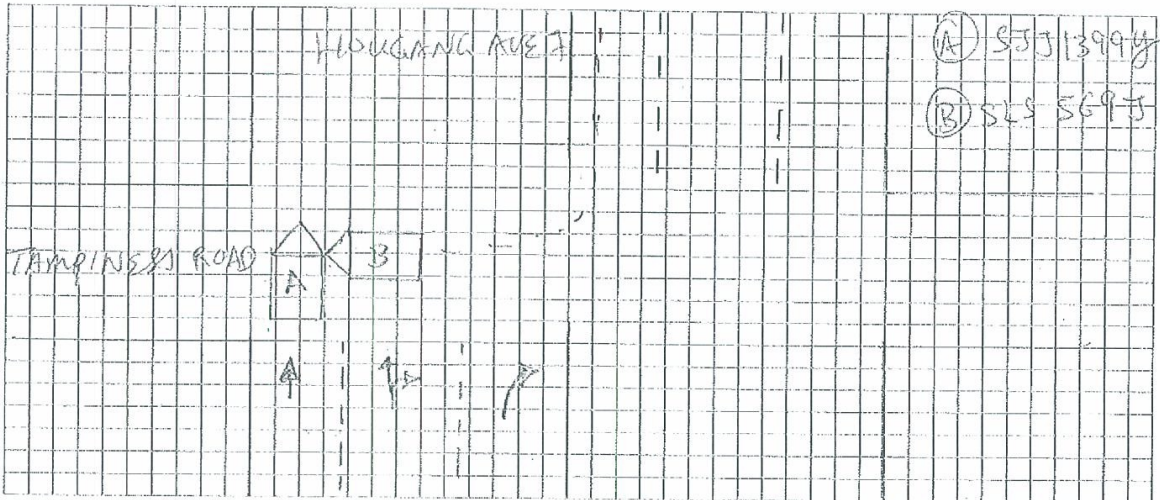 HOUGANG AVE 7
(A) SJJ1399Y
(B) SLS 569J
TAMPINESS ROAD
A
B